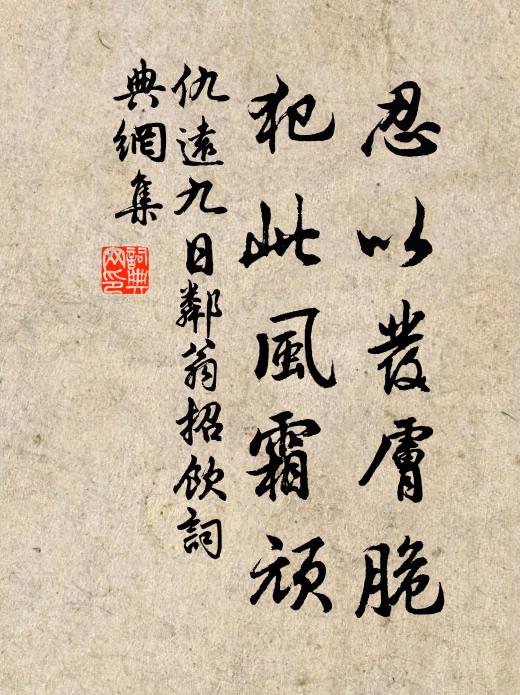 忍以發膚脆
犯此風霜頑
仇遠九日鄰翁招飲詞
典網集
詞典網印